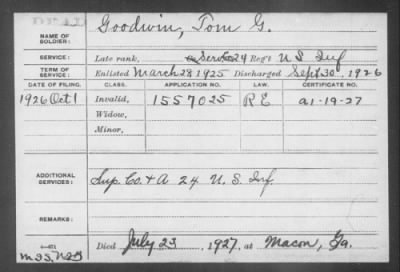 DEAD
NAME OF SOLDIER: Goodwin, Tom G.
SERVICE: Late rank, Serv Co 24 Reg't U S Inf
TERM OF SERVICE: Enlisted March 28 1925 Discharged Sept. 30, 1926
DATE OF FILING. CLASS. APPLICATION NO. LAW. CERTIFICATE NO.
1926 Oct 1 Invalid, 1557025 R E a1-19-27
Widow,
Minor,
ADDITIONAL SERVICES: Sup. Co. + A 24 U. S. Inf.
REMARKS:
Died July 23, 1927, at Macon, Ga.